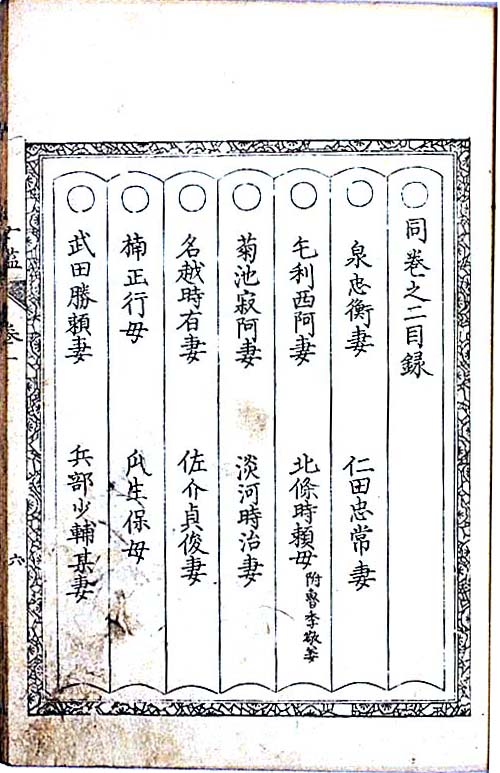 同卷之二目録
泉忠衡妻　仁田忠常妻
毛利西阿妻　北條時頼母 附魯季敬姜
菊池寂阿妻　淡河時治妻
名越時有妻　佐介貞俊妻
楠正行母　瓜生保母
武田勝頼妻　兵部少輔某妻
六